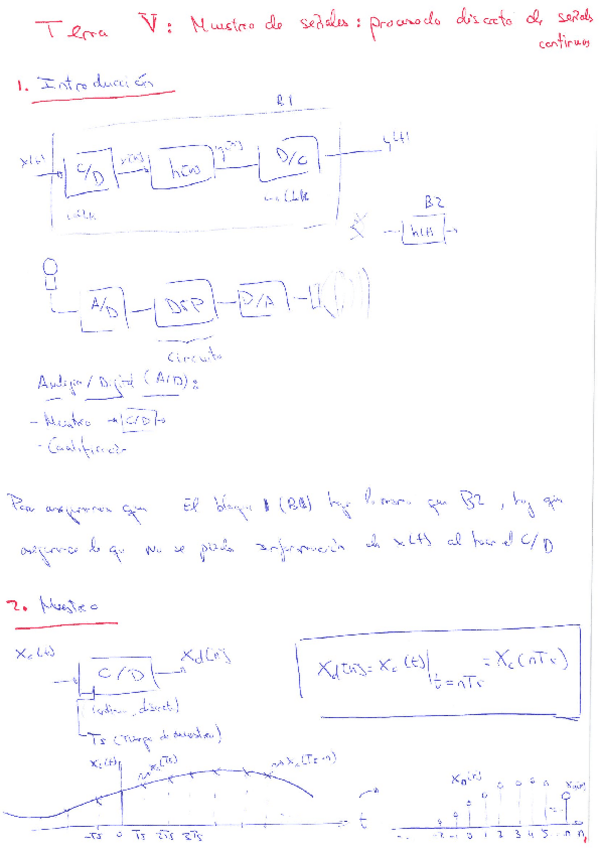 Tema V: Muestreo de señales: procesado discreto de señales
continuas
1. Introducción
B1
x(t) C/D x[n] h[n] y[n] D/C y(t)
B2
h(t)
A/D DSP D/A
Circuito
Analógico/Digital (A/D):
- Muestreo → C/D →
- Cuantificación
Para asegurarnos que El bloque 1 (B1) haga lo mismo que B2, hay que
asegurarse lo que No se pierda información de x(t) al hacer el C/D
2. Muestreo
Xc(t) C/D Xd[n]
Xd[n] = Xc(t)| t=nTs = Xc(nTs)
Ts (Tiempo de muestreo)
Xc(t) Xc(Ts) Xc(Ts·n)
-Ts 0 Ts 2Ts 3Ts t
-2 -1 0 1 2 3 4 5 n